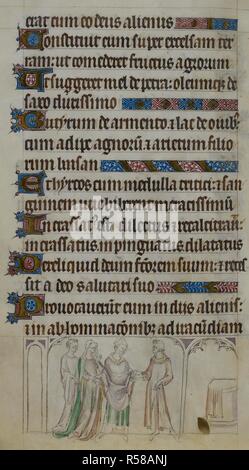 erat cum eo deus alienus
Constituit eum super excelsam ter
ram: ut comederet fructus agrorum
Ut suggeret mel de petra: oleumque de
saxo durissimo
Butyrum de armento et lac de ovib;
cum adipe agnorū et arietum filio
rum basan
Et hyrcos cum medulla tritici: et san
guinem uve biberet meracissimū
Incrassatus est dilectus et recalcitravit:
incrassatus inpinguatus dilatatus
Dereliquid deum fctorem suum: et reces
sit a deo salutari suo
Provocaverūt eum in diis alienis:
et in abhominacōnib; ad iracūdiam
alamy
Image ID: R58ANJ
www.alamy.com